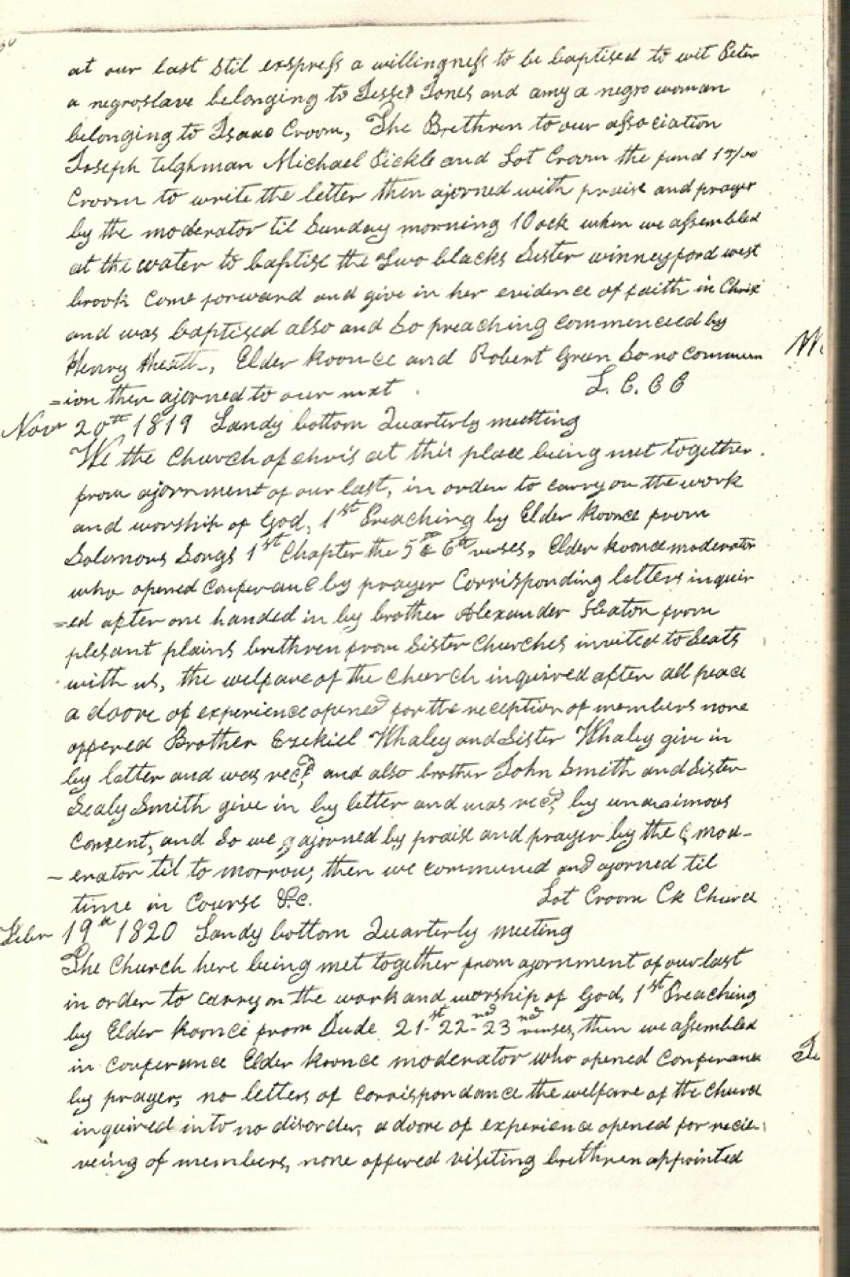 at our last Stil exspress a willingness to be baptised to wit Peter
a negroslave belonging to Jesse Jones and amy a negro woman
belonging to Isaac Croom, The Brethren to our association
Joseph tilghman Michael Pickle and Lot Croom the fund
Croom to write the letter then ajorned with praise and prayer
by the moderator til Sunday morning 10 ock when we assembled
at the water to baptise the two blacks Sister winneyford west
brook Come forward and give in her evidence of faith in Christ
and was baptised also and So preaching commenceed by
Henry Heath, Elder Koonce and Robert Green So no commun
=ion then ajorned to our next . L. C. C C
Novr 20th 1819 Sandy bottom Quarterly meetting
We the Church of chris at this place being met together.
from ajornment of our last, in order to carry on the work
and worship of God, 1st Preaching by Elder Koonce from
Solomons Songs 1st Chapter the 5th & 6th verses, Elder Koonce moderator
who opened Conferance by prayer Corrisponding letters inquir
=ed after one handed in by brother Alexander Seaton from
plesant plains brethren from Sister Churches invited to Seats
with us, the welfare of the Church inquired after all peace
a doore of experience opened for the reception of members none
offered Brother Ezekiel Whaley and Sister Whaley give in
by letter and was recd, and also brother John Smith and Sister
Sealy Smith give in by letter and was recd, by unanimous
Consent, and So we ajorned by praise and prayer by the mod-
-erator til to morrow, then we communed and ajorned til
time in Course &c. Lot Croom Ck Church
Febr 19th 1820 Sandy bottom Quarterly meeting
The Church here being met together from ajornment of our last
in order to carry on the work and worship of God, 1st Preaching
by Elder Koonce from Dude 21st 22nd 23nd verses, then we assembled
in conferance Elder Koonce moderator who opened Conferance
by prayer, no letters of corrispondance the welfare of the Church
inquired into no disorder, a doore of experience opened for recie
veing of members, none offered visiting brethren appointed